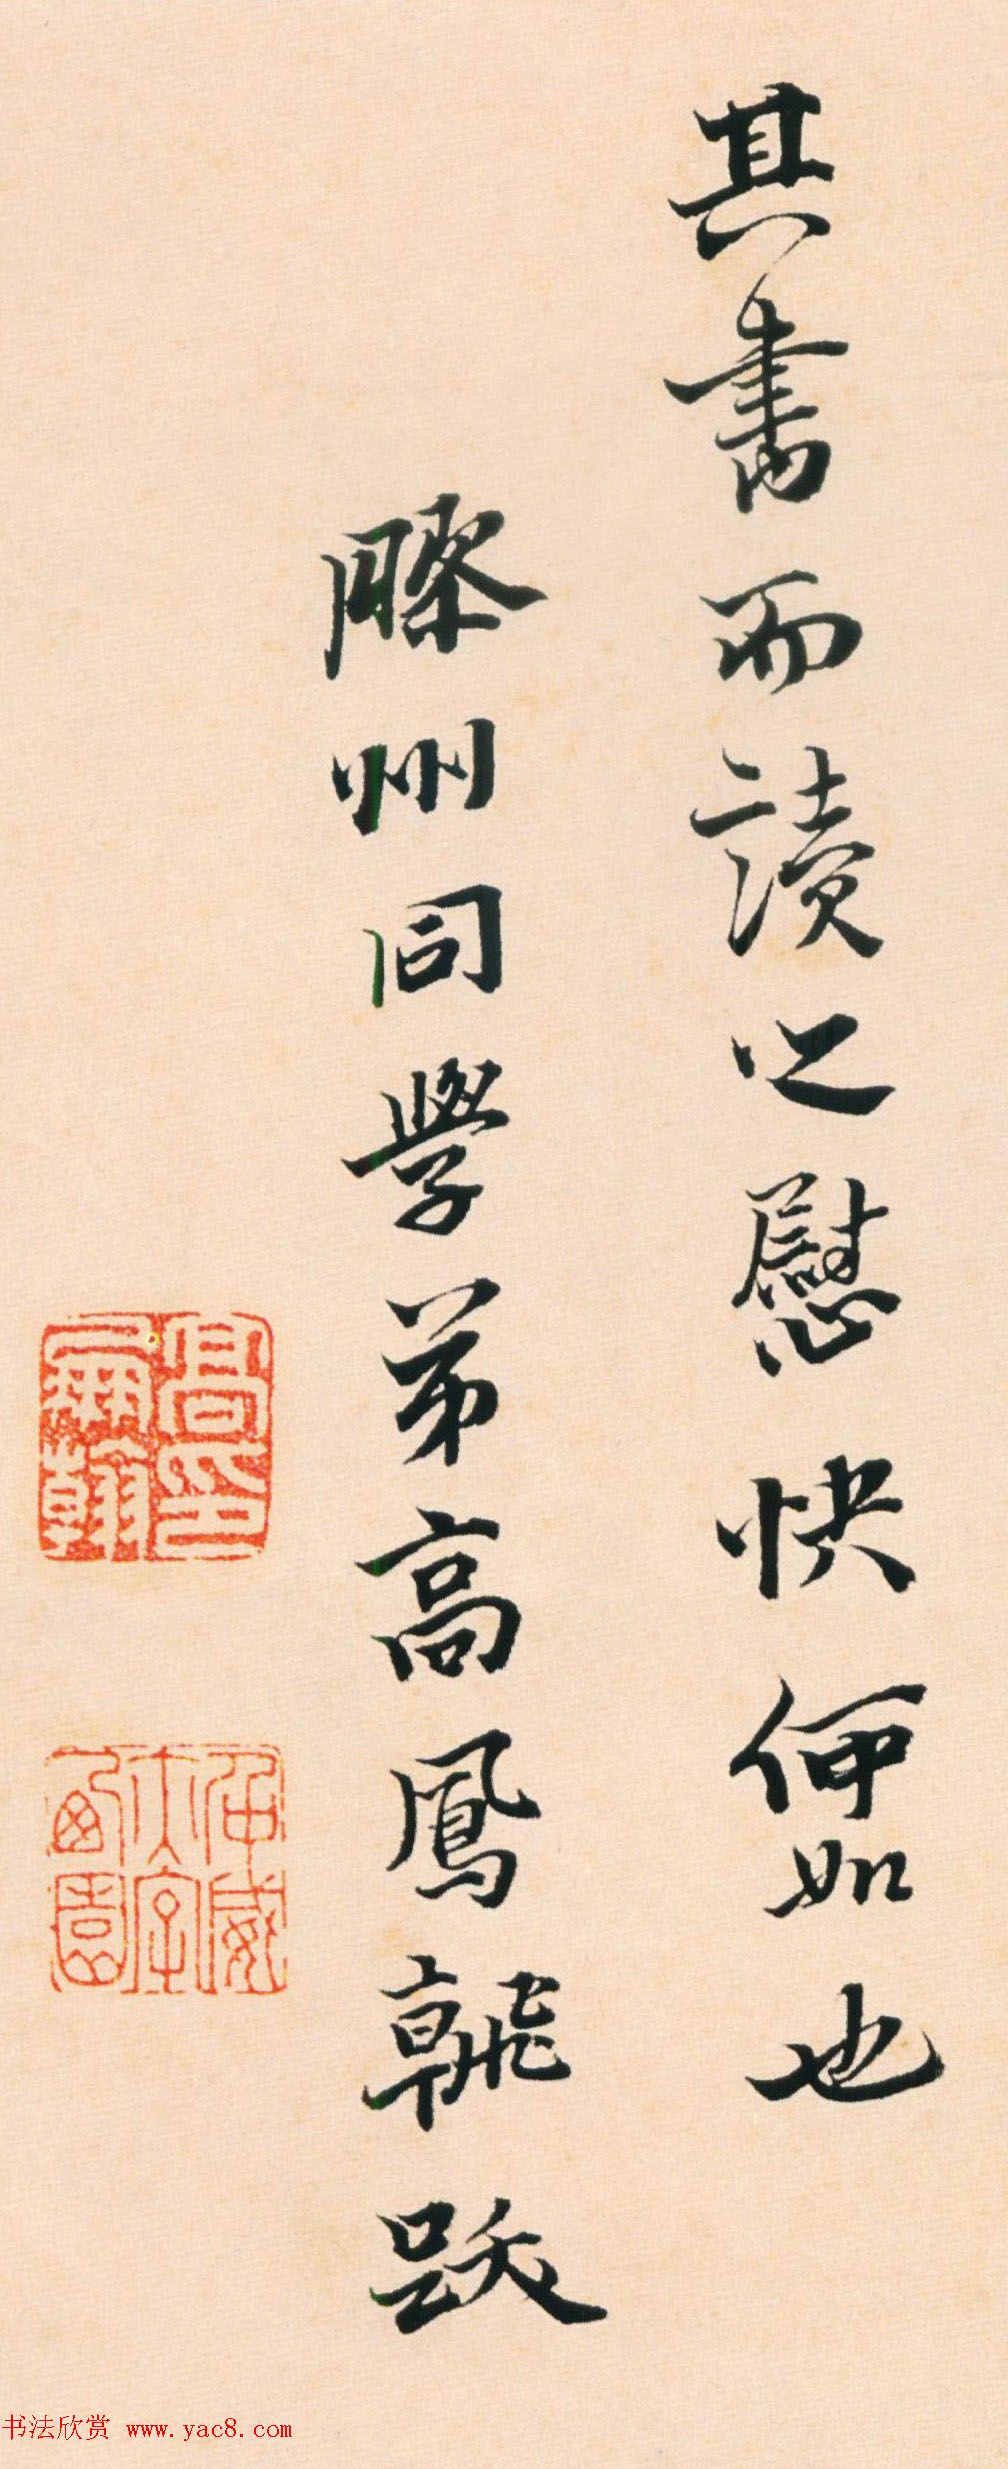 其書而讀之慰快何如也
膠州同學弟高鳳翰跋
高鳳翰印
书法欣赏 www.yac8.com